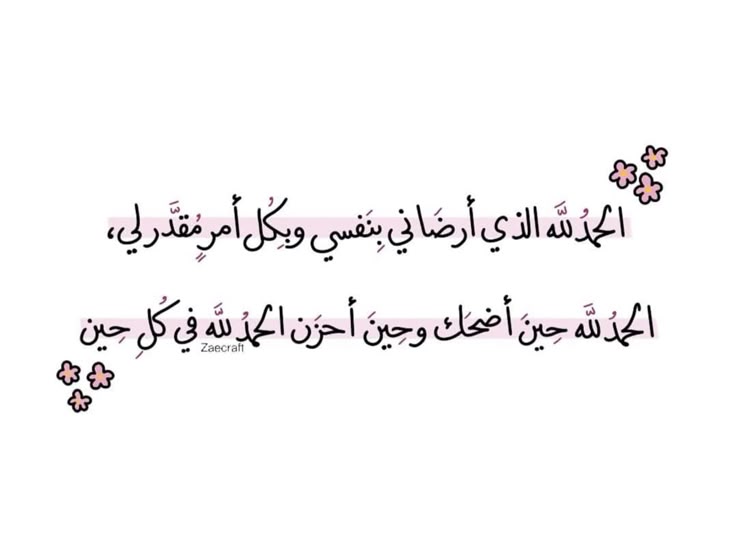 الحمدُ للَّه الذي أرضَاني بِنَفسي وبِكُل أمرٍ مُقدَّر لي،
الحمدُ للَّه حِينَ أضحَك وحِينَ أحزَن الحمدُ للَّه في كُلِ حِين
Zaecraft